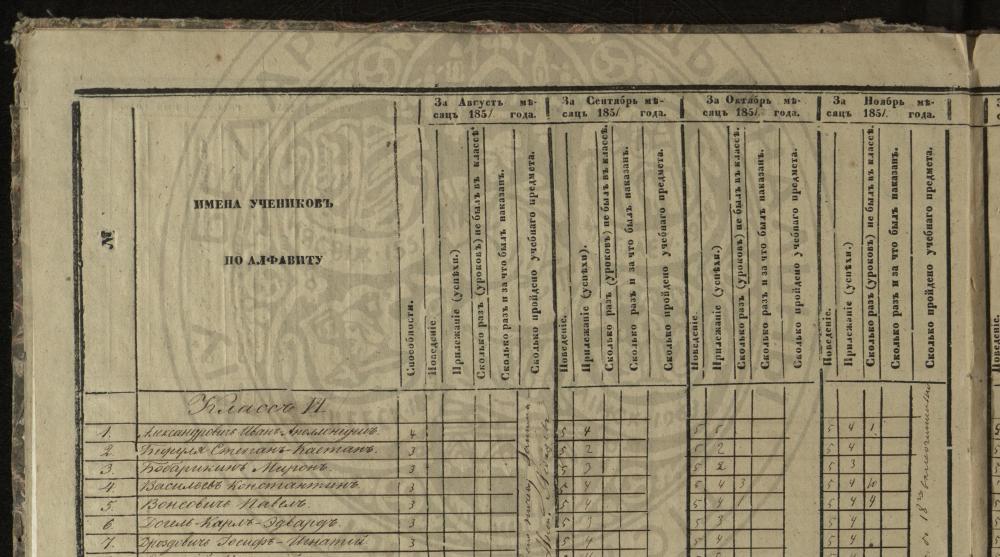 За Августъ мѣ-
сяцъ 185/. года.
За Сентябрь мѣ-
сяцъ 185/. года.
За Октябрь мѣ-
сяцъ 185/. года.
За Ноябрь мѣ-
сяцъ 185/. года.
№
ИМЕНА УЧЕНИКОВЪ
ПО АЛФАВИТУ
Способности.
Поведеніе
Прилежаніе (успѣхи.)
Сколько разъ (уроковъ) не былъ въ классѣ.
Сколько разъ и за что былъ наказанъ.
Сколько пройдено учебнаго предмета.
Поведеніе.
Прилежаніе (успѣхи).
Сколько разъ (уроковъ) не былъ въ классѣ.
Сколько разъ и за что былъ наказанъ.
Сколько пройдено учебнаго предмета.
Поведеніе
Прилежаніе (успѣхи.)
Сколько разъ (уроковъ) не былъ въ классѣ.
Сколько разъ и за что былъ наказанъ.
Сколько пройдено учебнаго предмета.
Поведеніе.
Прилежаніе (успѣхи.)
Сколько разъ (уроковъ) не былъ въ классѣ.
Сколько разъ и за что былъ наказанъ.
Сколько пройдено учебнаго предмета.
Классъ II
1. Александровичъ Иванъ Аполлинарій 4 5 4 5 5 5 4 1
2. Степанъ-Каетанъ. 3 5 2 5 2 5 4
3. Бобарикинъ Миронъ. 3 5 3 5 2 5 3
4. Васильевъ Константинъ. 3 5 4 5 4 3 5 4 10
5. Вонсовичъ Павелъ. 3 5 4 5 4 5 4 4
6. Догель-Карлъ-Эдвардъ. 3 5 3 5 3 5 4
7. Дроздовичъ Іосифъ-Игнатій 3 5 4 5 4 5 4